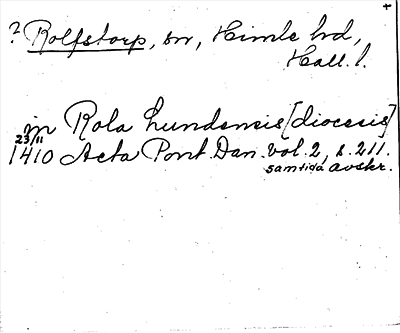 ? Rolfstorp, sn, Himle hrd,
Hall. l.
in Rola Lundensis [diocesis]
23/11
1410 Acta Pont. Dan. vol. 2, s. 211.
samtida avskr.